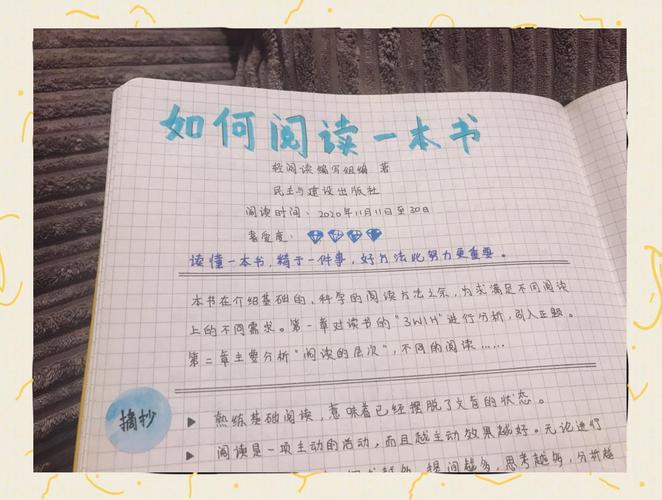 如何阅读一本书
轻阅读编写组编 著
民主与建设出版社
阅读时间：2020年11月11日至30日
喜爱度：
读懂一本书，精于一件事，好方法比努力更重要。
本书在介绍基础的，科学的阅读方法之余，为求满足不同阅读
上的不同需求。第一章对读书的"3W1H"进行分析，引入正题。
第二章主要分析"阅读的层次"，不同的阅读……
摘抄
▶ 熟练基础阅读，意味着已经摆脱了文盲的状态。
▶ 阅读是一项主动的活动，而且越主动效果越好。无论进行
提问越多，思考越多，分析越